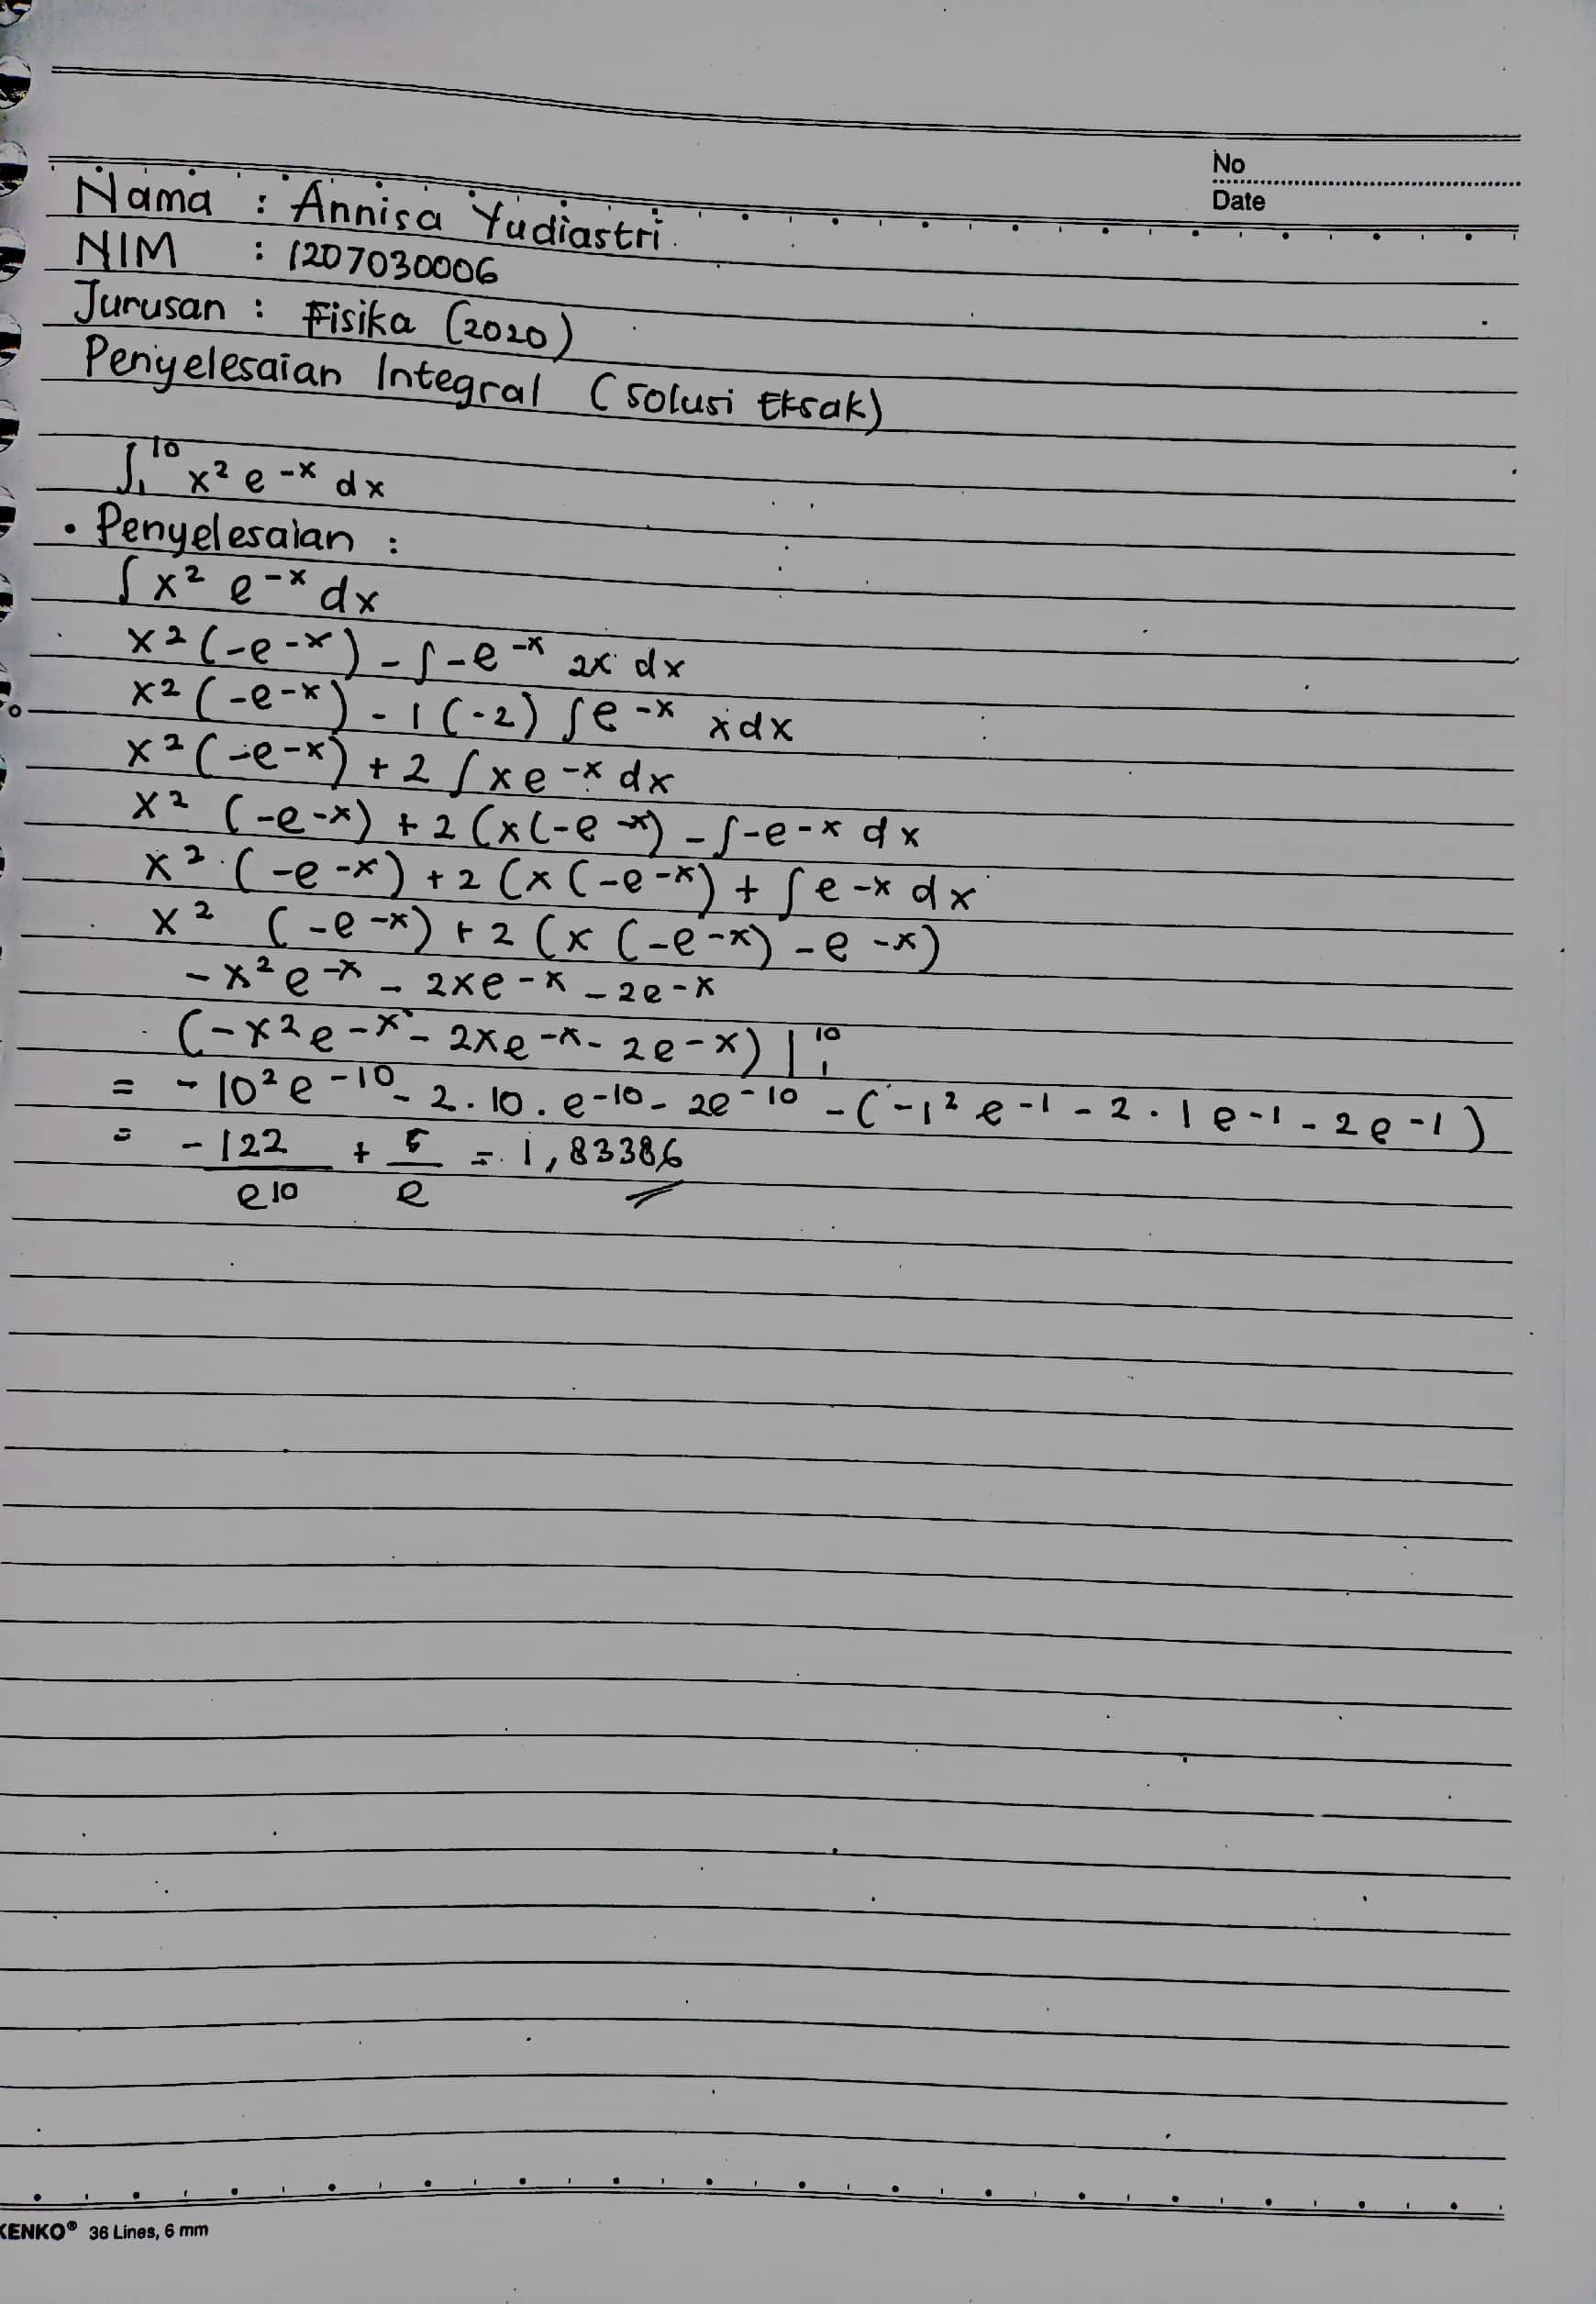 No
Date
Nama : Annisa Yudiastri
NIM : 1207030006
Jurusan : Fisika (2020)
Penyelesaian Integral (Solusi Eksak)
∫₁¹⁰ x² e^-x dx
• Penyelesaian :
∫ x² e^-x dx
x² (-e^-x) - ∫ -e^-x 2x dx
x² (-e^-x) - 1 (-2) ∫ e^-x x dx
x² (-e^-x) + 2 ∫ x e^-x dx
x² (-e^-x) + 2 (x (-e^-x) - ∫ -e^-x dx
x² (-e^-x) + 2 (x (-e^-x) + ∫ e^-x dx
x² (-e^-x) + 2 (x (-e^-x) - e^-x)
-x² e^-x - 2x e^-x - 2e^-x
(-x² e^-x - 2x e^-x - 2e^-x) |₁¹⁰
= -10² e^-10 - 2 . 10 . e^-10 - 2e^-10 - (-1² e^-1 - 2 . 1 e^-1 - 2e^-1)
= -122/e^10 + 5/e = 1,83386
KENKO® 36 Lines, 6 mm